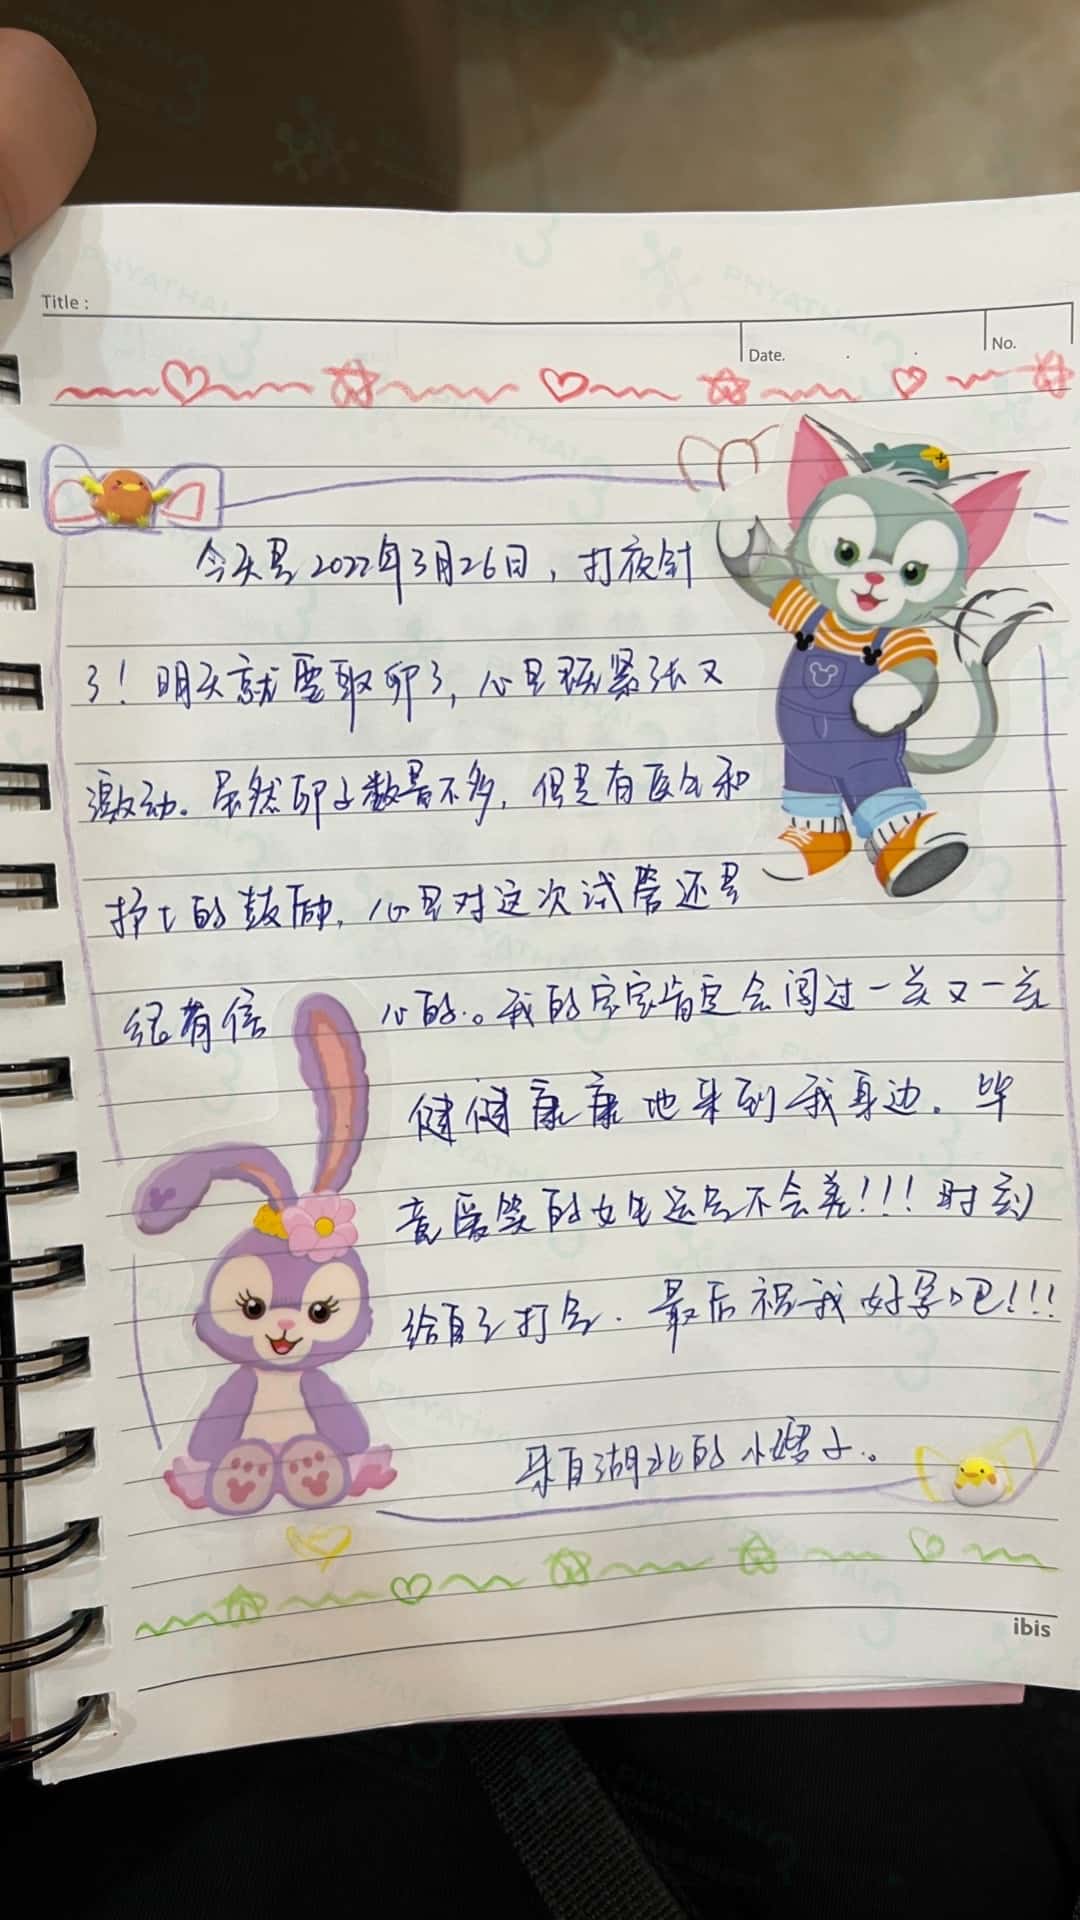 Title :
Date.
No.
今天是2022年3月26日，打夜针
了！明天就要取卵了，心里既紧张又
激动。虽然卵子数量不多，但是有医生和
护士的鼓励，心里对这次试管还是
很有信心的。我的宝宝肯定会闯过一关又一关
健健康康地来到我身边。毕
竟爱笑的女生运气不会差!!!时刻
给自己打气．最后祝我好孕吧!!!
来自湖北的小婷子。
ibis
PHYATHAI